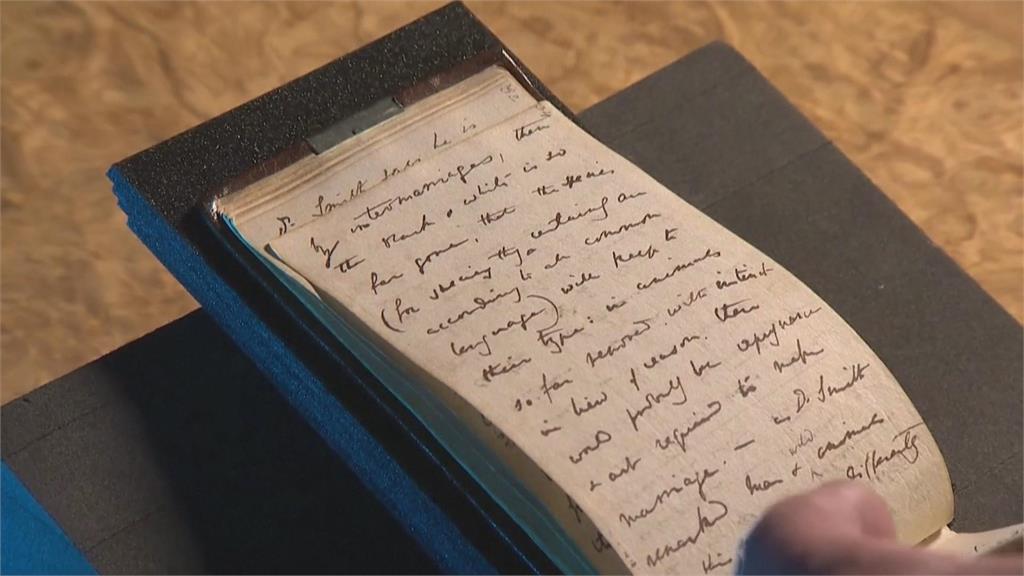 Dr Smith says he is
by intermarriages, then
the black & white is so
far gone, that the species
(for species they certainly are
according to all common
language) will keep to
their type: in animals
so far removed with instinct
in lieu of reason there
would probably be repugnance
& art required to make
marriage. — as Dr Smith
remarked man & wild animals
in this differently